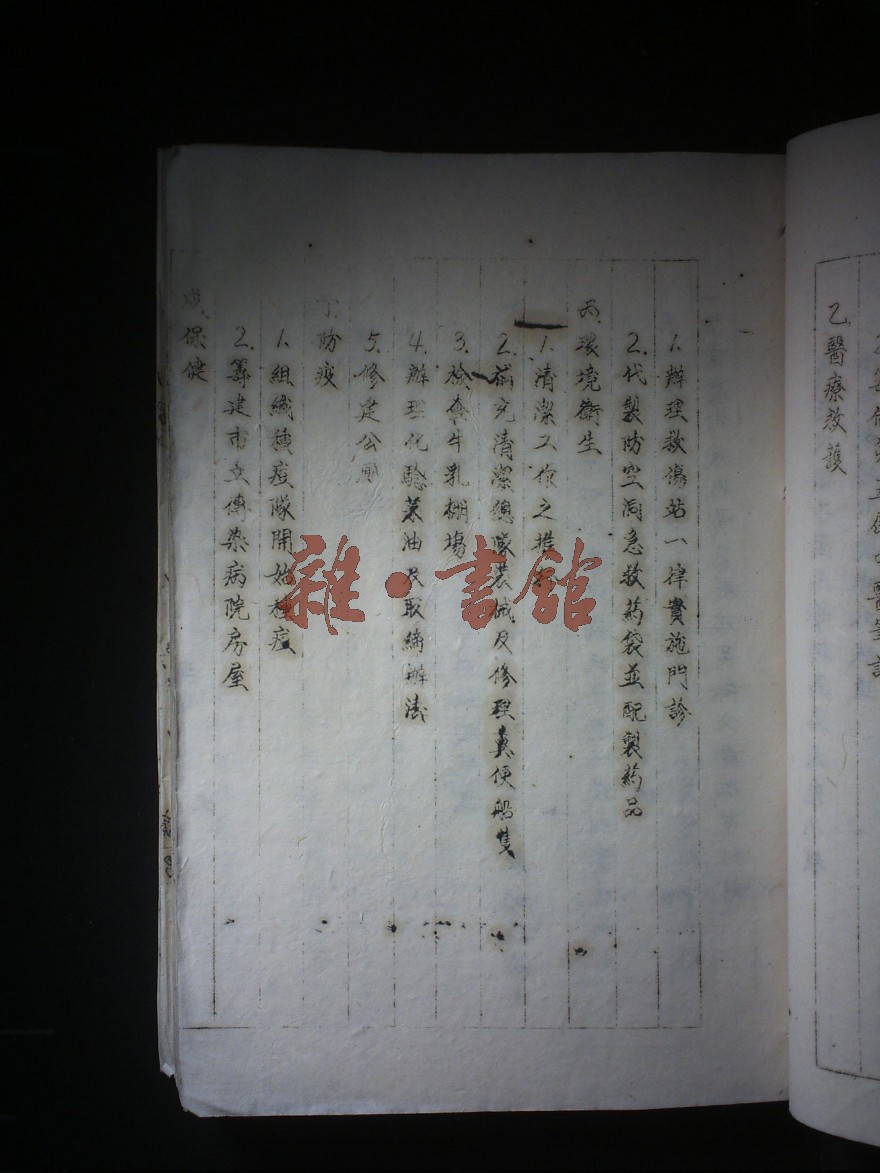 乙、醫療救護
1.辦理救傷站一律實施門診
2.代製防空洞急救药袋並配製药品
丙、環境衛生
1.清潔工作之推
2.補充清潔總隊裝械及修理糞便船隻
3.檢查牛乳棚場
4.辦理化驗菜油及取締辦法
5.修建公廁
丁、防疫
1.組織種痘隊開始種痘
2.籌建市立傳染病院房屋
戊、保健
雜·書館